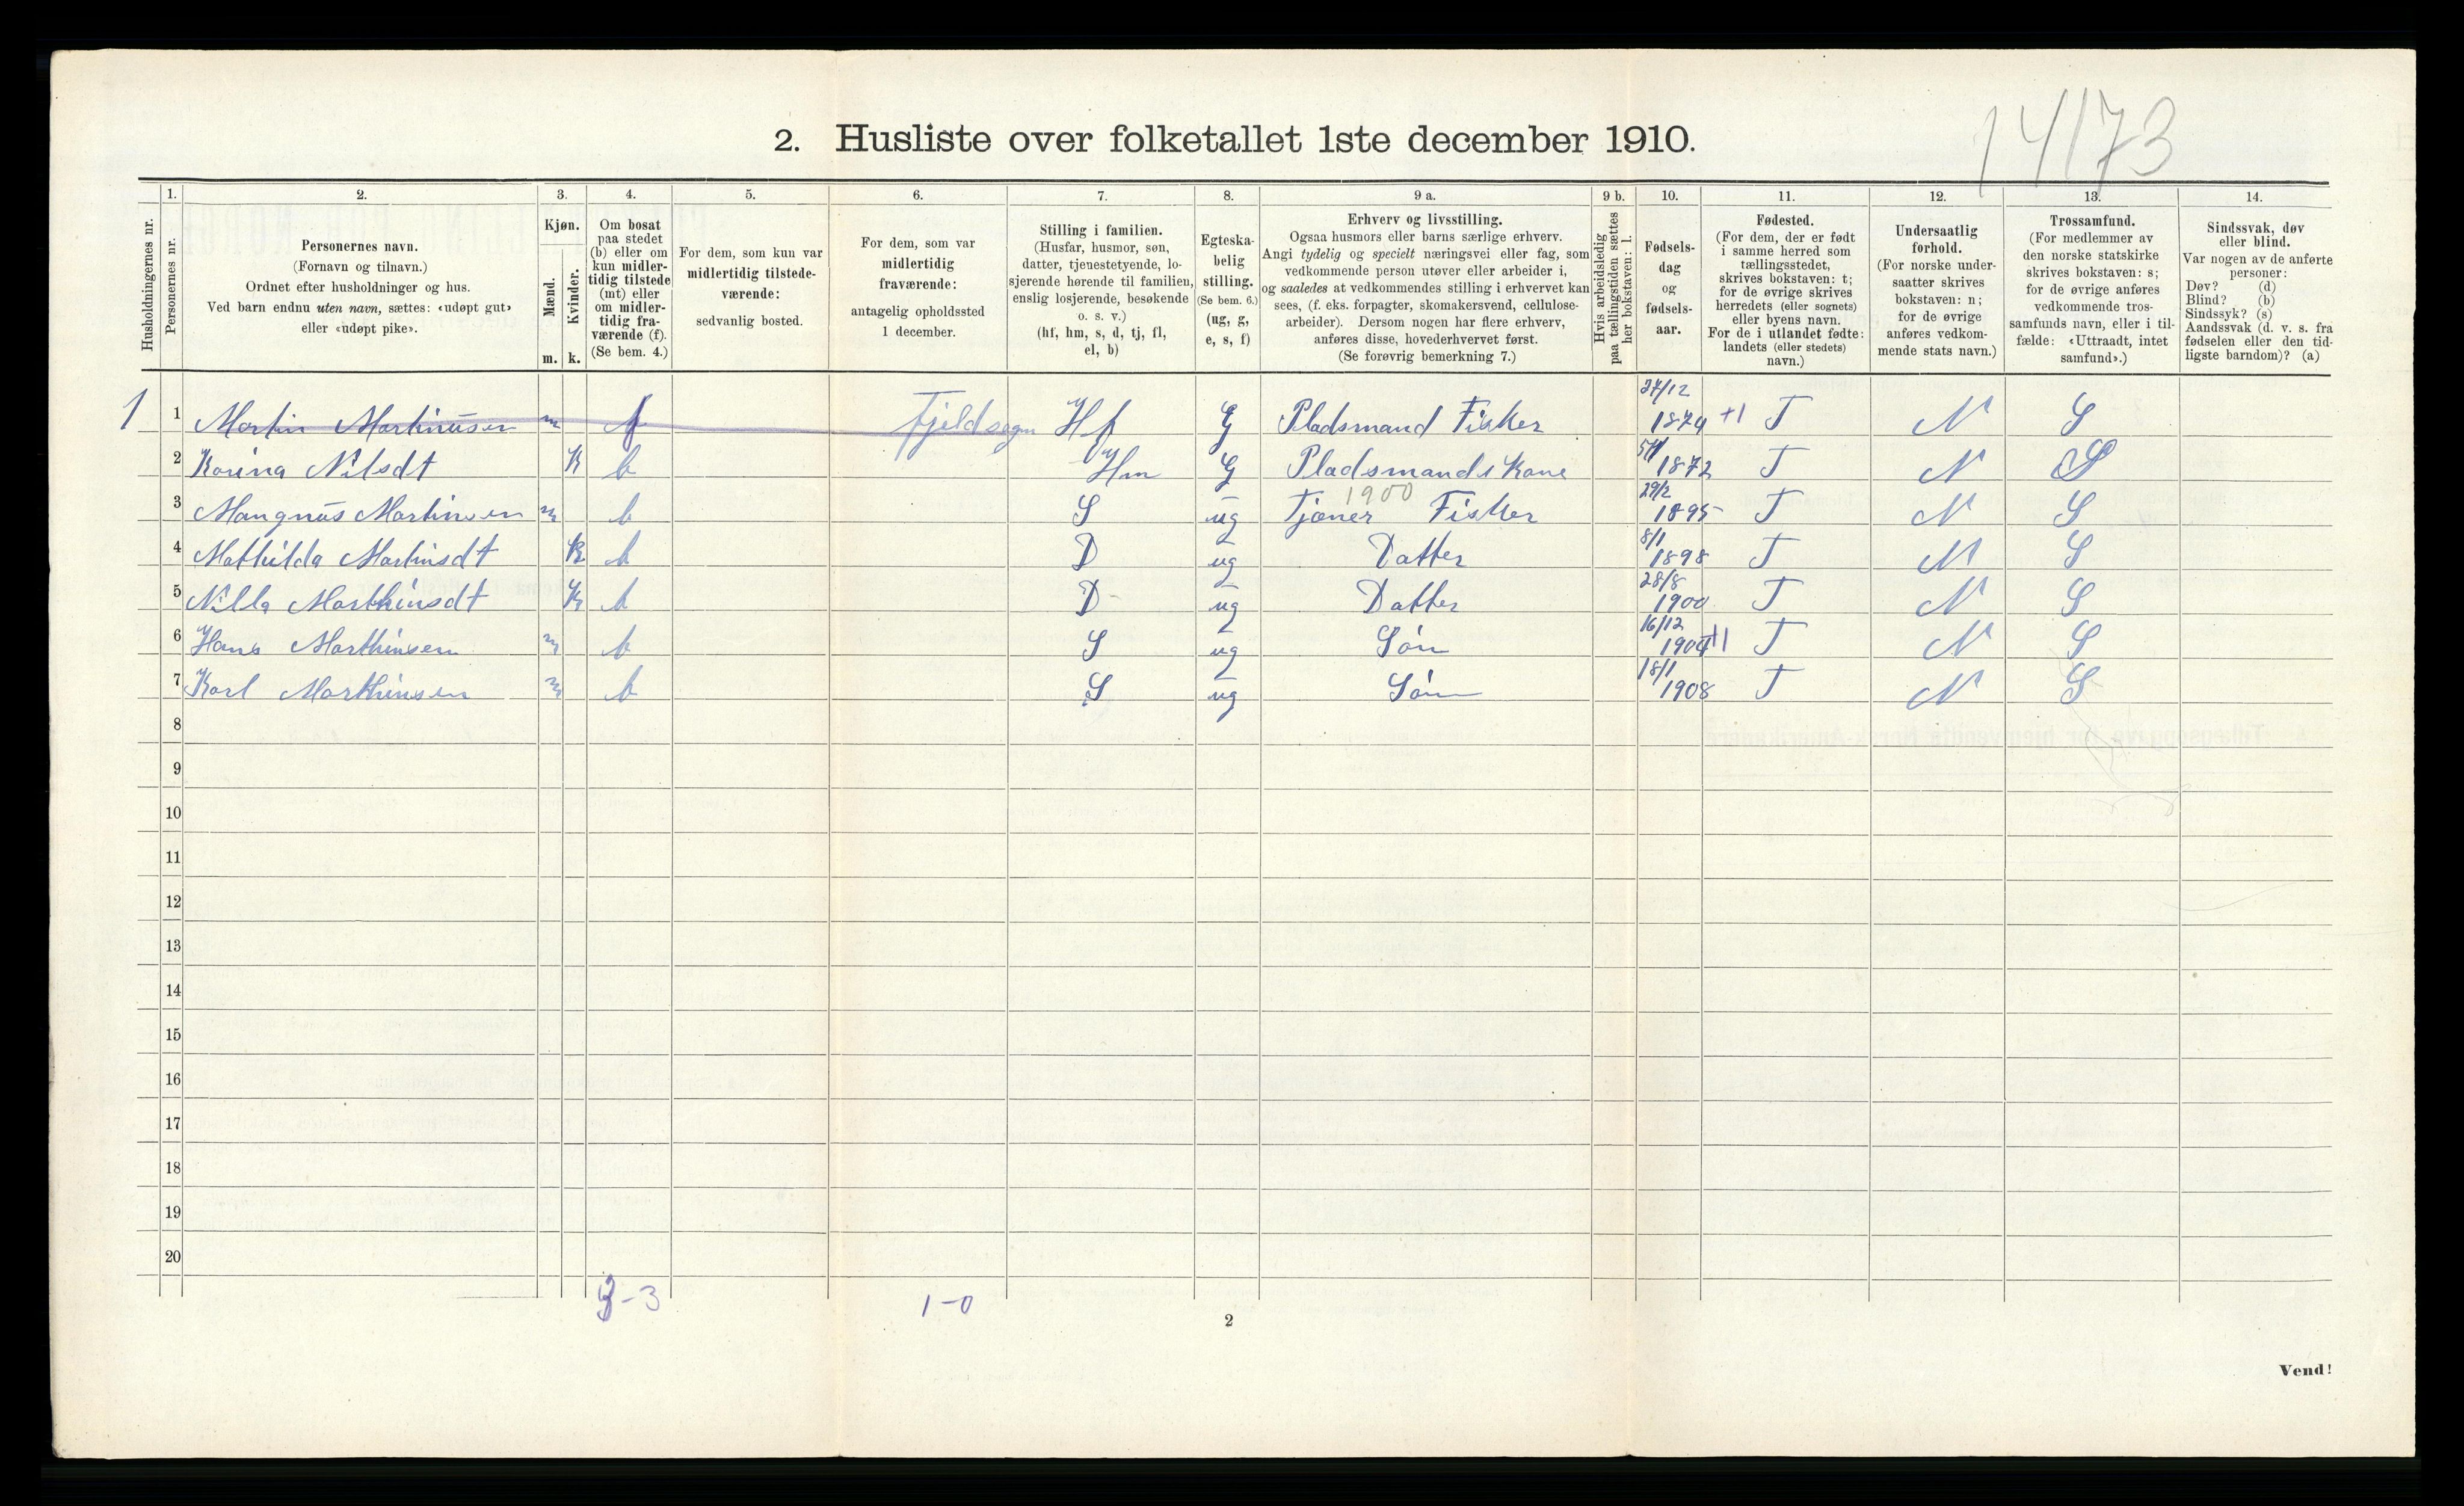 14173
2. Husliste over folketallet 1ste december 1910.
Husholdningernes nr.
1.
Personernes nr.
2.
Personernes navn.
(Fornavn og tilnavn.)
Ordnet efter husholdninger og hus.
Ved barn endnu uten navn, sættes: «udøpt gut»
eller «udøpt pike».
3.
Kjøn.
Mænd.
Kvinder.
m. k.
4.
Om bosat
paa stedet
(b) eller om
kun midler-
tidig tilstede
(mt) eller
om midler-
tidig fra-
værende (f).
(Se bem. 4.)
5.
For dem, som kun var
midlertidig tilstede-
værende:
sedvanlig bosted.
6.
For dem, som var
midlertidig
fraværende:
antagelig opholdssted
1 december.
7.
Stilling i familien.
(Husfar, husmor, søn,
datter, tjenestetyende, lo-
sjerende hørende til familien,
enslig losjerende, besøkende
o. s. v.)
(hf, hm, s, d, tj, fl,
el, b)
8.
Egteska-
belig
stilling.
(Se bem. 6.)
(ug, g,
e, s, f)
9 a.
Erhverv og livsstilling.
Ogsaa husmors eller barns særlige erhverv.
Angi tydelig og specielt næringsvei eller fag, som
vedkommende person utøver eller arbeider i,
og saaledes at vedkommendes stilling i erhvervet kan
sees, (f. eks. forpagter, skomakersvend, cellulose-
arbeider). Dersom nogen har flere erhverv,
anføres disse, hovederhvervet først.
(Se forøvrig bemerkning 7.)
9 b.
Hvis arbeidsledig
paa tællingstiden sættes
her bokstaven: l.
10.
Fødsels-
dag
og
fødsels-
aar.
11.
Fødested.
(For dem, der er født
i samme herred som
tællingsstedet,
skrives bokstaven: t;
for de øvrige skrives
herredets (eller sognets)
eller byens navn.
For de i utlandet fødte:
landets (eller stedets)
navn.)
12.
Undersaatlig
forhold.
(For norske under-
saatter skrives
bokstaven: n;
for de øvrige
anføres vedkom-
mende stats navn.)
13.
Trossamfund.
(For medlemmer av
den norske statskirke
skrives bokstaven: s;
for de øvrige anføres
vedkommende tros-
samfunds navn, eller i til-
fælde: «Uttraadt, intet
samfund».)
14.
Sindssvak, døv
eller blind.
Var nogen av de anførte
personer:
Døv? (d)
Blind? (b)
Sindssyk? (s)
Aandssvak (d. v. s. fra
fødselen eller den tid-
ligste barndom)? (a)
1 1 Martin Martinusen m f Fjeldsogn Hf G Pladsmand Fisker 27/12 1874 +1 T N S
2 Karina Nilsdt K b Hm G Pladsmands Kone 1872 T N S
1900
3 Mangnus Martinsen m b S ug Tjener Fisker 29/2 1895 T N S
4 Mathilda Martinsdt K b D ug Datter 8/1 1898 T N S
5 Nilla Marthinsdt K b D ug Datter 28/8 1900 T N S
6 Hans Marthinsen m b S ug Søn 16/12 1904 +1 T N S
7 Karl Marthinsen m b S ug Søn 18/1 1908 T N S
8
9
10
11
12
13
14
15
16
17
18
19
20
3-3 1-0
2
Vend!